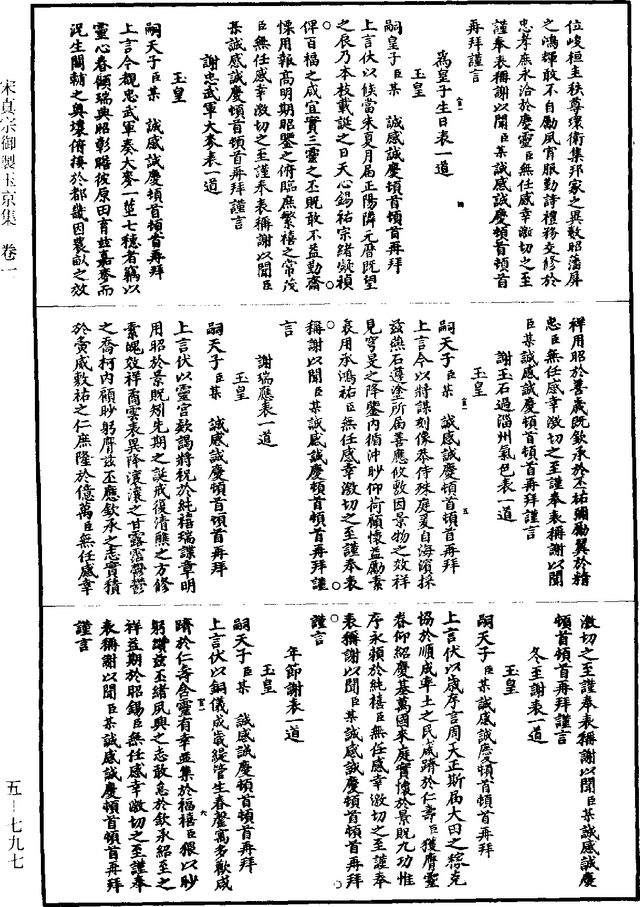 位峻桓圭秩尊環衛集邦家之異數昭藩屏
之鴻輝敢不自勵夙宵服勤詩禮務交修於
忠孝庶永洽於慶靈臣無任感幸激切之至
謹奉表稱謝以聞臣某誠感誠慶頓首頓首
再拜謹言
為皇子生日表一道
玉皇
嗣皇子臣某 誠感誠慶頓首頓首再拜
上言伏以候當朱夏月屆正陽隣元曆既望
之辰乃本枝載誕之日天心錫祐宗緒凝禎
俾百福之咸宜實三靈之丕貺敢不益勤齋
慄用報高明期昭鑒之俯臨庶繁禧之常茂
臣無任感幸激切之至謹奉表稱謝以聞臣
某誠感誠慶頓首頓首再拜謹言
謝忠武軍大麥表一道
玉皇
嗣天子臣某 誠感誠慶頓首頓首再拜
上言今覩忠武軍奏大麥一莖七穗者竊以
靈心眷傾瑞典昭彰睠彼原田育茲嘉麥而
況生關輔之輿壤俯接於都畿因農畝之效
祥用昭於善歲既欽承於丕祐彌勵翼於精
忠臣無任感幸激切之至謹奉表稱謝以聞
臣某誠感誠慶頓首頓首再拜謹言
謝玉石過淄州氣色表一道
玉皇
嗣天子臣某 誠感誠慶頓首頓首再拜
上言今以將謀刻像恭侍殊庭爰自海濱採
茲燕石蘧塗所屆善應攸數因景物之效祥
見穹旻之降鑒內循沖眇仰荷顧懷益勵素
衷用承鴻祐臣無任感幸激切之至謹奉表
稱謝以聞臣某誠感誠慶頓首頓首再拜謹
言
謝瑞應表一道
玉皇
嗣天子臣某 誠感誠慶頓首頓首再拜
上言伏以靈宮欵謁將祝於純禧瑞諜章明
用昭於景貺矧先期之誕戒復清醮之方修
素魄效祥矞雲表異降瀼瀼之甘露靄欝欝
之喬柯內顧眇躬膺茲丕應欽承之志實積
於寅威敷祐之仁庶隆於億萬臣無任感幸
激切之至謹奉表稱謝以聞臣某誠感誠慶
頓首頓首再拜謹言
冬至謝表一道
玉皇
嗣天子臣某誠感誠慶頓首頓首再拜
上言伏以歲序言周天正斯屆大田之稼克
協於順成率土之民咸躋於仁壽臣獲膺靈
眷仰紹慶基萬國來庭實懷於景貺九功惟
序永賴於純禧臣無任感幸激切之至謹奉
表稱謝以聞臣某誠感誠慶頓首頓首再拜
謹言
年節謝表一道
玉皇
嗣天子臣某 誠感誠慶頓首頓首再拜
上言伏以銅儀成歲緹管生春聲寓多歡咸
躋於仁壽含靈有幸並集於福禧臣猥以眇
躬躋茲丕緒夙興之志敢怠於欽承紹至之
祥益期於昭錫臣無任感幸激切之至謹奉
表稱謝以聞臣某誠感誠慶頓首頓首再拜
謹言
宋真宗御製玉京集 卷一
五—七九七